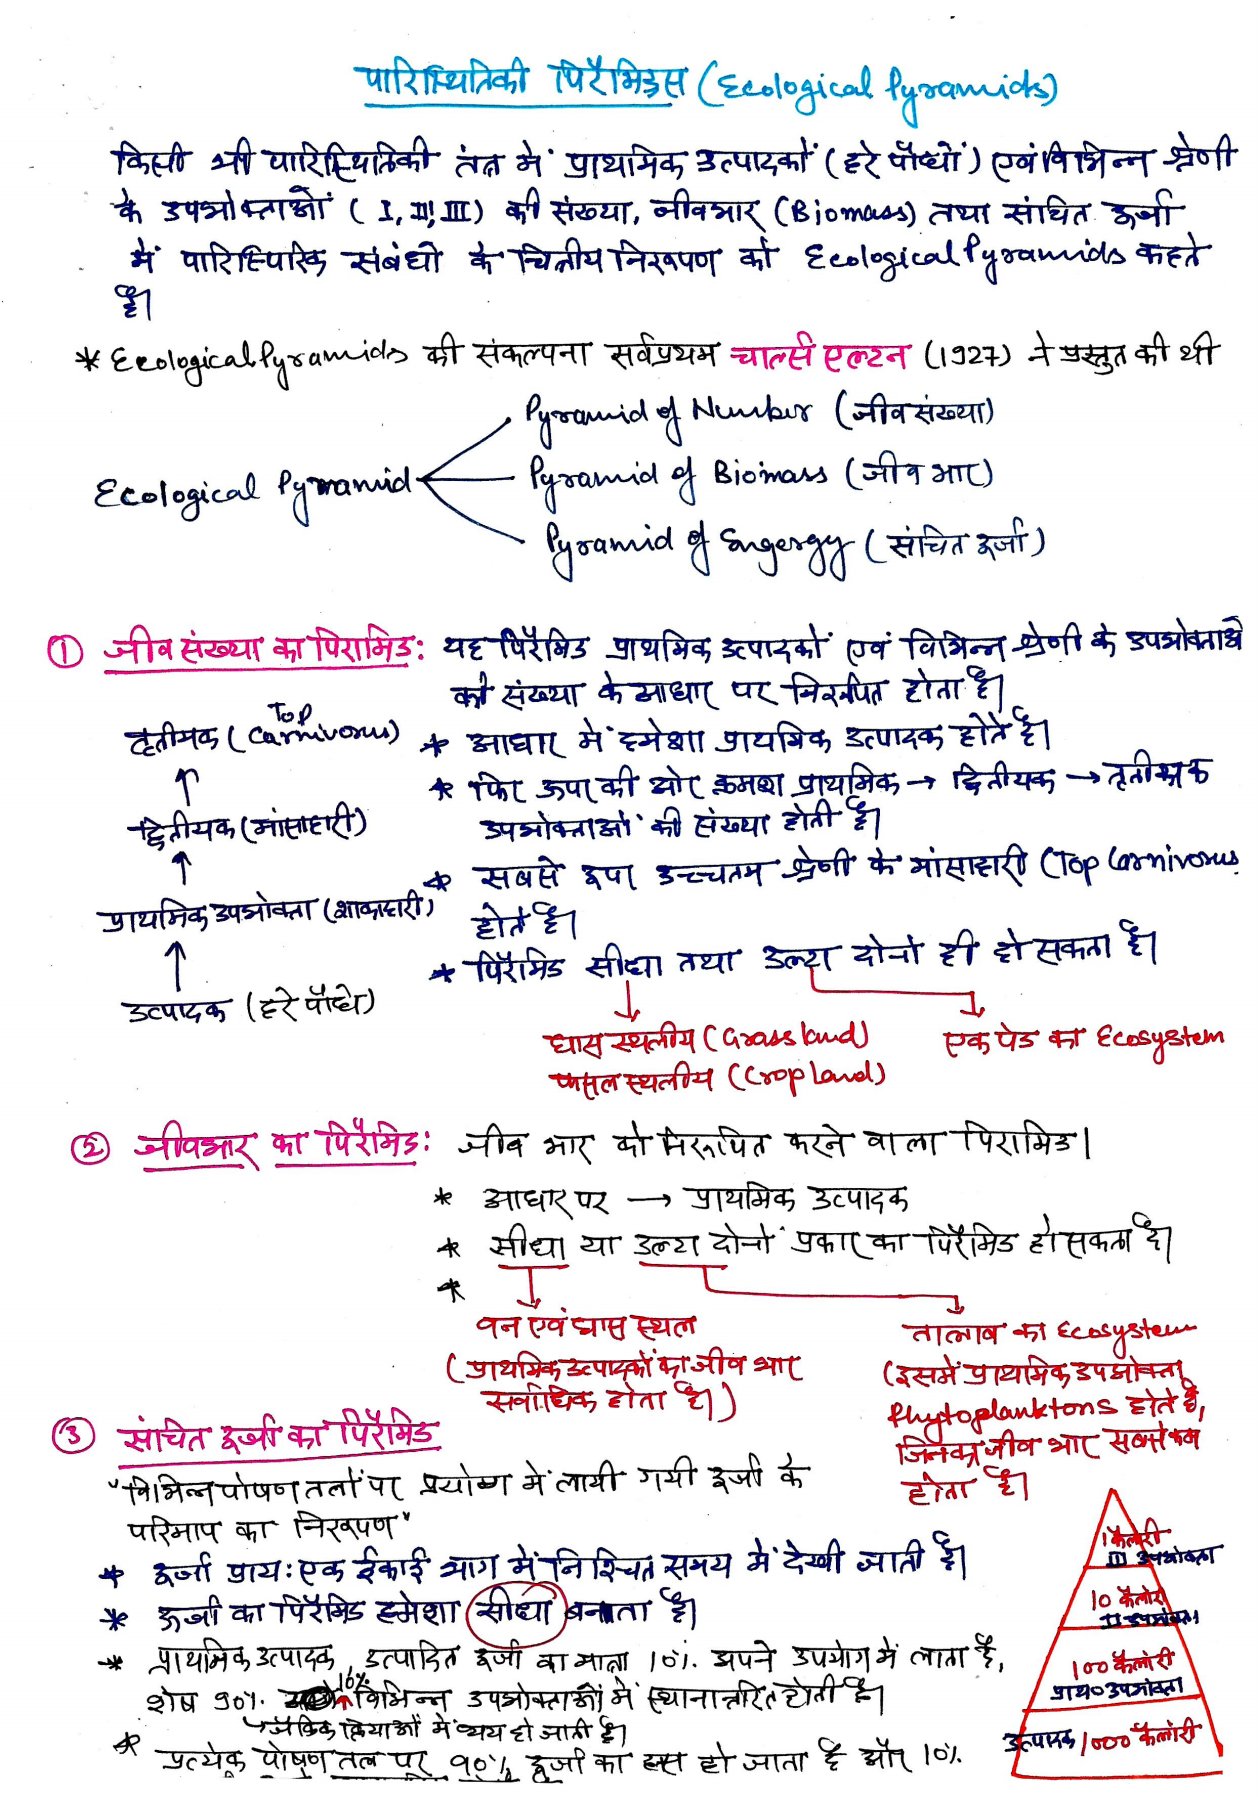 पारिस्थितिकी पिरैमिड्स (Ecological Pyramids)
किसी भी पारिस्थितिकी तंत्र में प्राथमिक उत्पादकों (हरे पौधों) एवं विभिन्न श्रेणी
के उपभोक्ताओं (I, II, III) की संख्या, जीवभार (Biomass) तथा संचित ऊर्जा
में पारिस्परिक संबंधो के चित्रीय निरूपण को Ecological Pyramids कहते
हैं।
* Ecological Pyramids की संकल्पना सर्वप्रथम चार्ल्स एल्टन (1927) ने प्रस्तुत की थी
Pyramid of Number (जीव संख्या)
Ecological Pyramid
Pyramid of Biomass (जीव भार)
Pyramid of Engergy (संचित ऊर्जा)
① जीव संख्या का पिरामिड: यह पिरैमिड प्राथमिक उत्पादकों एवं विभिन्न श्रेणी के उपभोक्ताओं
की संख्या के आधार पर निरूपित होता है।
तृतीयक (Top Carnivorus)
* आधार में हमेशा प्राथमिक उत्पादक होते है।
* फिर ऊपर की ओर क्रमश प्राथमिक → द्वितीयक → तृतीयक
द्वितीयक (मांसाहारी)
उपभोक्ताओं की संख्या होती है।
* सबसे ऊपर उच्चतम श्रेणी के मांसाहारी (Top Carnivorus
प्राथमिक उपभोक्ता (शाकाहारी)
होते है।
* पिरैमिड सीधा तथा उल्टा दोनो ही हो सकता है।
उत्पादक (हरे पौधे)
घास स्थलीय (Grassland)
एक पेड का Ecosystem
फसल स्थलीय (Cropland)
② जीवभार का पिरैमिड: जीव भार को निरूपित करने वाला पिरामिड।
* आधार पर → प्राथमिक उत्पादक
* सीधा या उल्टा दोनों प्रकार का पिरैमिड हो सकता है।
*
वन एवं घास स्थल
(प्राथमिक उत्पादकों का जीव भार
सर्वाधिक होता है।)
तालाब का Ecosystem
(इसमें प्राथमिक उपभोक्ता
Phytoplanktons होते है,
जिनका जीव भार सबसे कम
होता है।
③ संचित ऊर्जा का पिरैमिड
"विभिन्न पोषण तलों पर प्रयोग में लायी गयी ऊर्जा के
परिमाप का निरूपण"
* ऊर्जा प्राय: एक ईकाई भाग में निश्चित समय में देखी जाती है।
* ऊर्जा का पिरैमिड हमेशा सीधा बनता है।
* प्राथमिक उत्पादक, उत्पादित ऊर्जा का मात्रा 10% अपने उपयोग में लाता है,
शेष 90% 10% विभिन्न उपभोक्ताओं में स्थानान्तरित होती है।
जैविक क्रियाओं में व्यय हो जाती है।
* प्रत्येक पोषण तल पर 90% ऊर्जा का ह्रास हो जाता है और 10%
1 कैलोरी
III उपभोक्ता
10 कैलोरी
II उपभोक्ता
100 कैलोरी
प्राथ० उपभोक्ता
उत्पादक 1000 कैलोरी